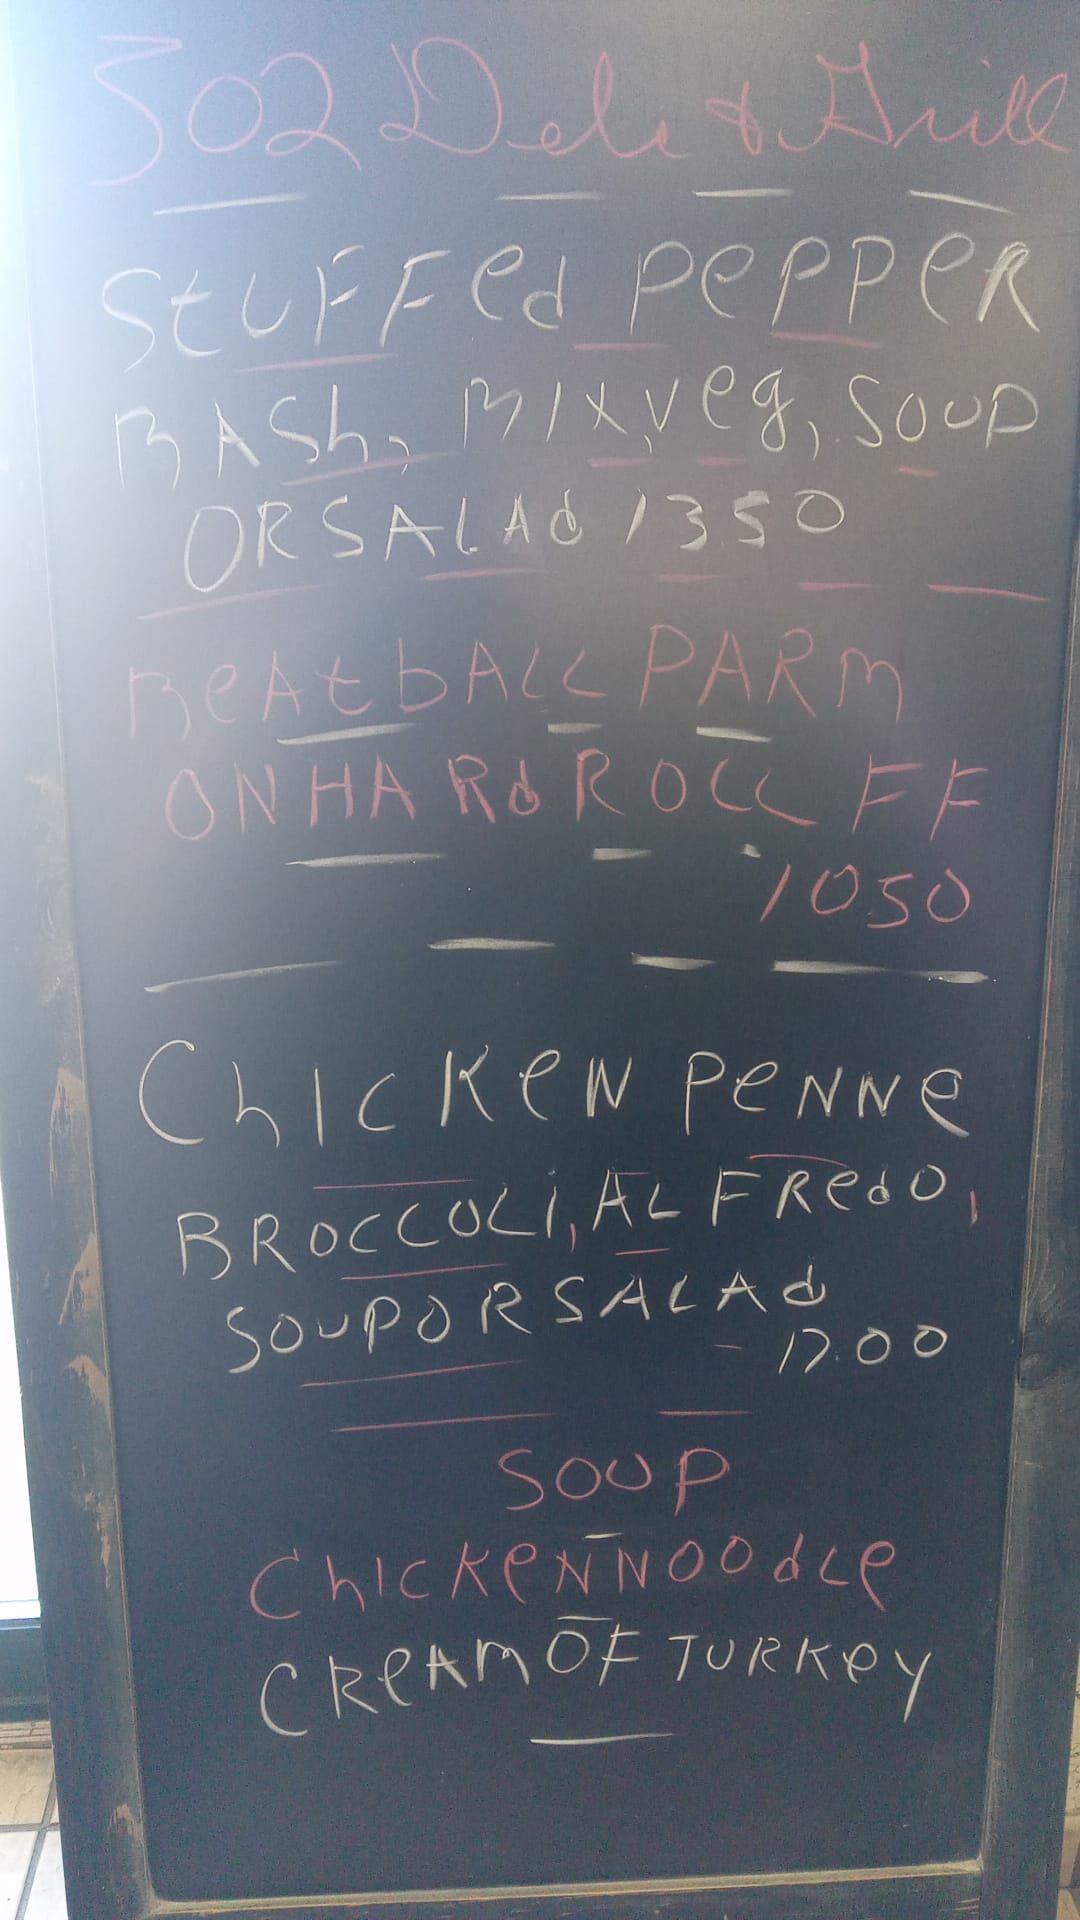 302 Deli & Grill
Stuffed Pepper
MASh, MIX, Veg, SOUP
OR SALAd 1350
MeAtbALL PARM
ON HARd ROLL FF
1050
ChICKeN PeNNe
BROCCOLi, ALFRedO,
SOUP OR SALAd
17.00
SOUP
ChICKeN NOOdLe
CReAM OF TURKey